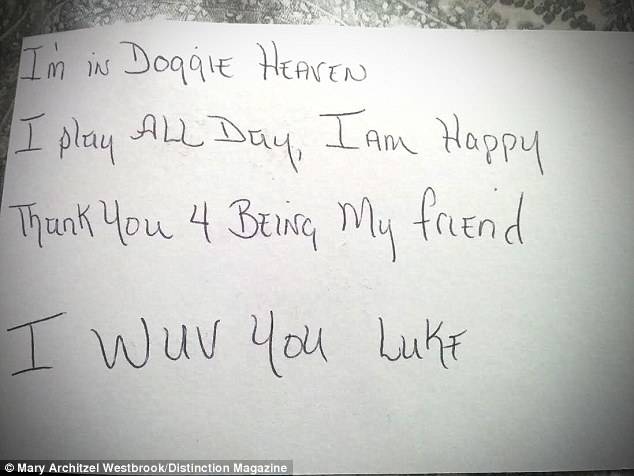 I'm in Doggie Heaven
I play All Day, I am Happy
Thank You 4 Being My friend
I Wuv You Luke
© Mary Architzel Westbrook/Distinction Magazine